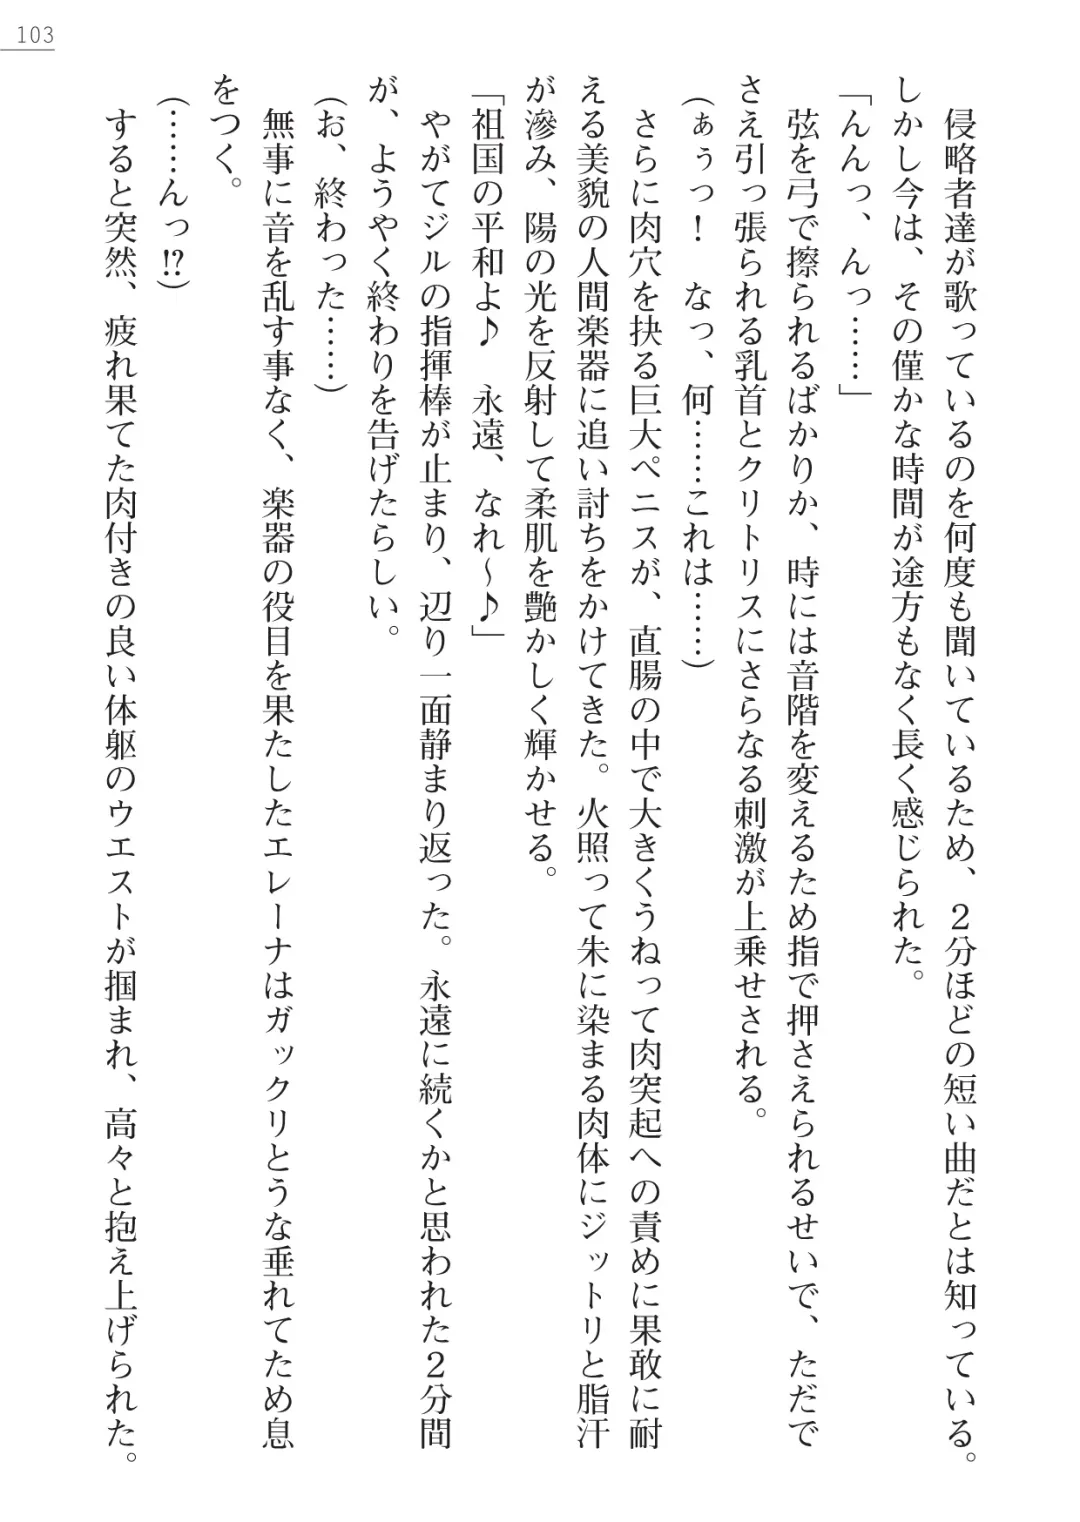 103
　侵略者達が歌っているのを何度も聞いているため、２分ほどの短い曲だとは知っている。
しかし今は、その僅かな時間が途方もなく長く感じられた。
「んんっ、んっ……」
　弦を弓で擦られるばかりか、時には音階を変えるため指で押さえられるせいで、ただで
さえ引っ張られる乳首とクリトリスにさらなる刺激が上乗せされる。
(ぁぅっ！　なっ、何……これは……)
　さらに肉穴を抉る巨大ペニスが、直腸の中で大きくうねって肉突起への責めに果敢に耐
える美貌の人間楽器に追い討ちをかけてきた。火照って朱に染まる肉体にジットリと脂汗
が滲み、陽の光を反射して柔肌を艶かしく輝かせる。
「祖国の平和よ♪　永遠、なれ～♪」
　やがてジルの指揮棒が止まり、辺り一面静まり返った。永遠に続くかと思われた２分間
が、ようやく終わりを告げたらしい。
(お、終わった……)
　無事に音を乱す事なく、楽器の役目を果たしたエレーナはガックリとうな垂れてため息
をつく。
(……んっ!?)
　すると突然、疲れ果てた肉付きの良い体躯のウエストが掴まれ、高々と抱え上げられた。